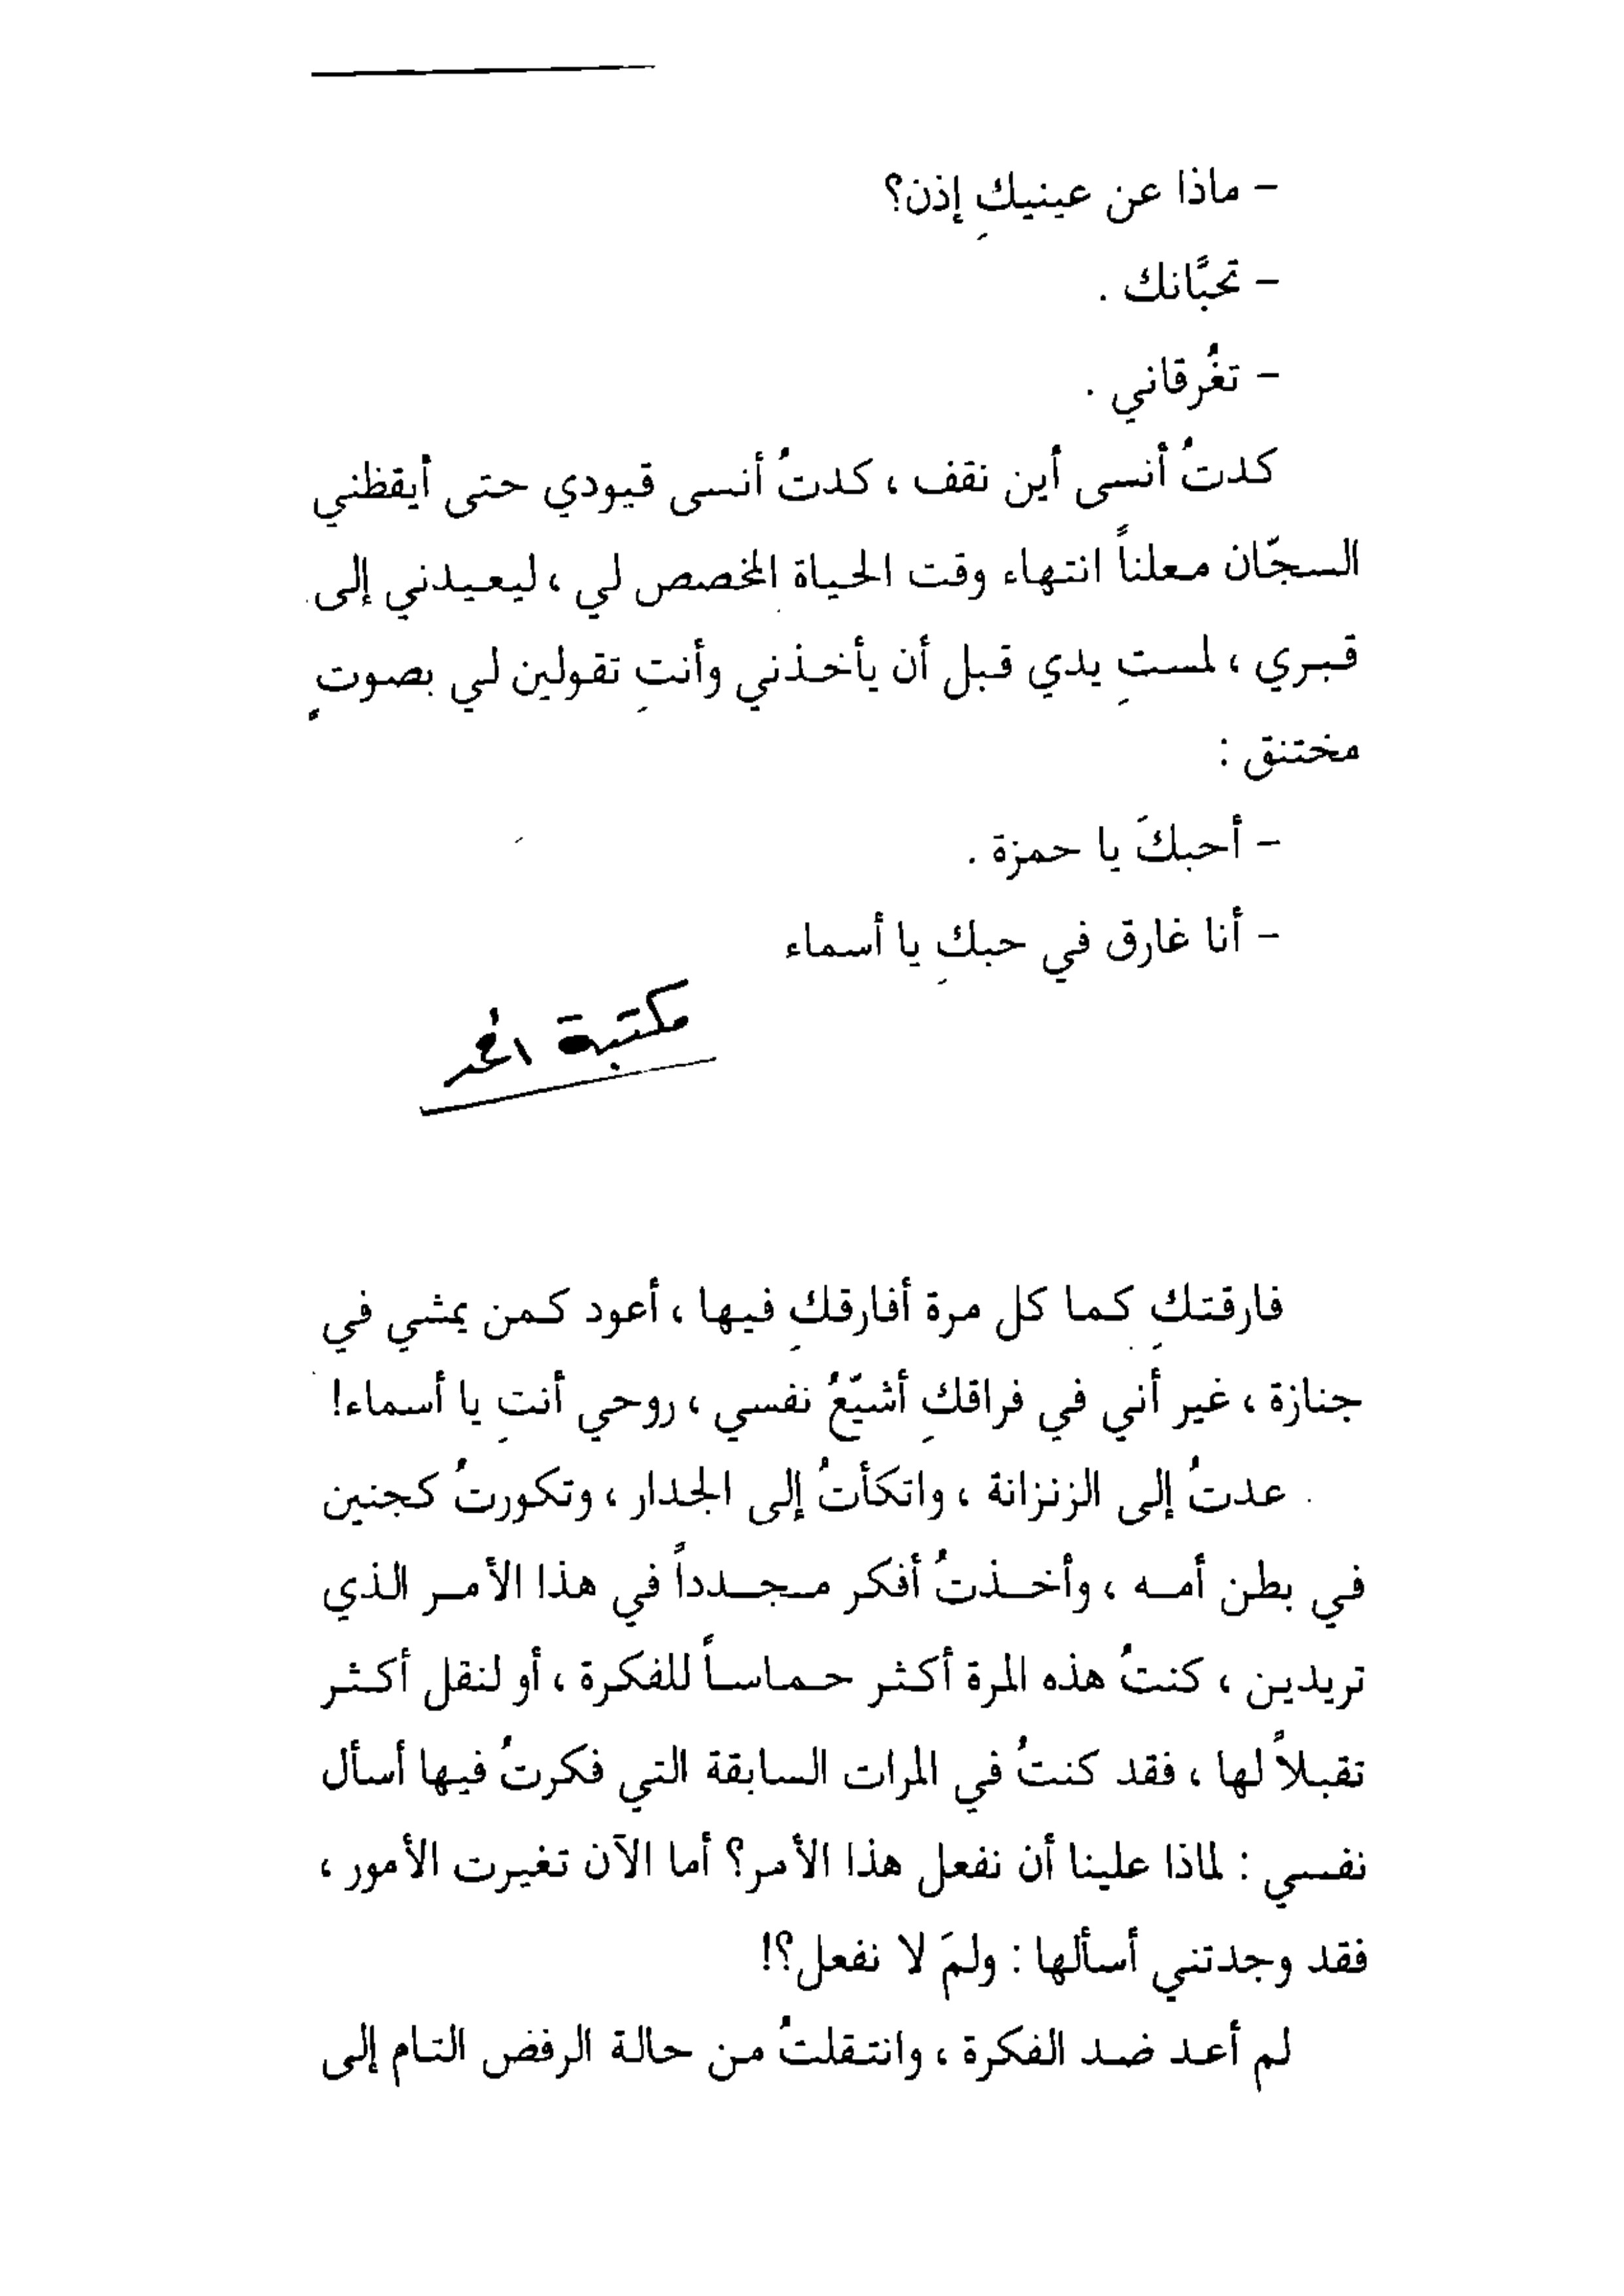 - ماذا عن عينيكِ إذن؟
- تحبًّانك .
- تغُرقاني .
كدتُ أنسى أين نقف ، كدتُ أنسى قيودي حتى أيقظني
السجّان معلناً انتهاء وقت الحياة المخصص لي ، ليعيدني إلى
قبري ، لمستِ يدي قبل أن يأخذني وأنتِ تقولين لي بصوتٍ
مختنق :
- أحبكَ يا حمزة .
- أنا غارق في حبكِ يا أسماء
مكتبة
فارقتكِ كما كل مرة أفارقكِ فيها ، أعود كمن يمشي في
جنازة ، غير أني في فراقكِ أشيّعُ نفسي ، روحي أنتِ يا أسماء!
عدتُ إلى الزنزانة ، واتكأتُ إلى الجدار ، وتكورتُ كجنين
في بطن أمه ، وأخذتُ أفكر مجدداً في هذا الأمر الذي
تريدين ، كنتُ هذه المرة أكثر حماساً للفكرة ، أو لنقل أكثر
تقبلاً لها ، فقد كنتُ في المرات السابقة التي فكرتُ فيها أسأل
نفسي : لماذا علينا أن نفعل هذا الأمر؟ أما الآن تغيرت الأمور ،
فقد وجدتني أسألها : ولمَ لا نفعل؟!
لم أعد ضد الفكرة ، وانتقلتُ من حالة الرفض التام إلى